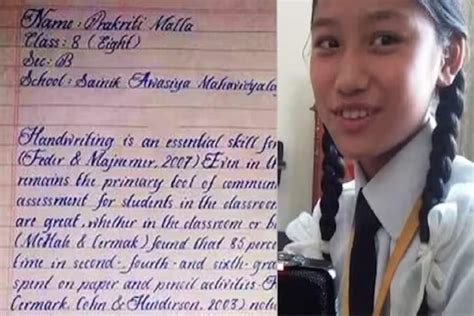 Name : Prakriti Malla
Class : 8 ( Eight)
Sec : B
School : Sainik Awasiya Mahavidyalay
Handwriting is an essential skill for
(Feder & Majnemer, 2007) Even in th
remains the primary tool of commun
assessment for students in the classroom
are great, whether in the classroom or b
(McHale & Cermak) found that 85 perce
time in second-, fourth- and sixth- gra
spent on paper and pencil activities.
Cermark, Cohn & Henderson, 2003) no